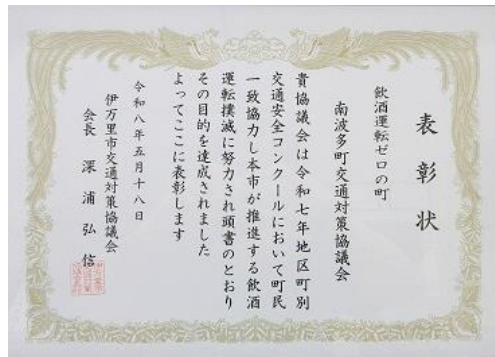 表彰状
飲酒運転ゼロの町
南波多町交通対策協議会
貴協議会は令和七年地区町別
交通安全コンクールにおいて町民
一致協力し本市が推進する飲酒
運転撲滅に努力され頭書のとおり
その目的を達成されました
よってここに表彰します
令和八年五月十八日
伊万里市交通対策協議会
会長 深浦弘信